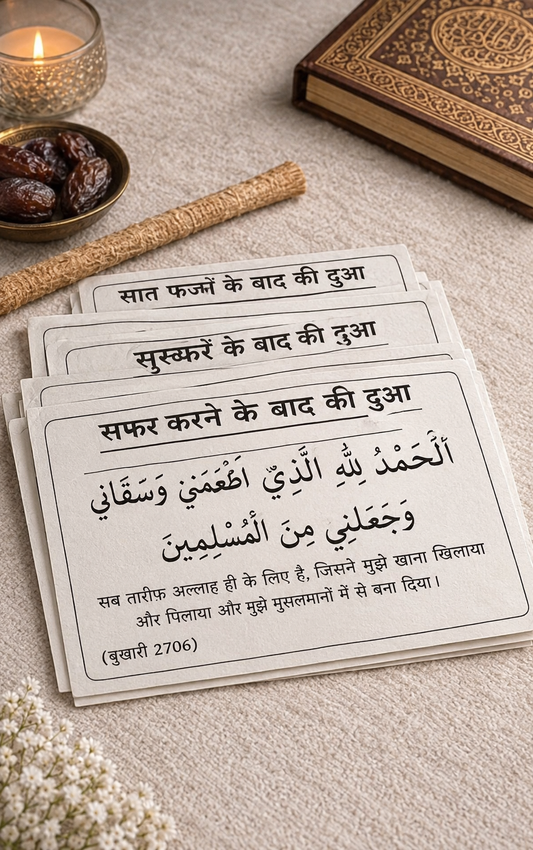 सात फज्नों के बाद की दुआ
सुस्व्फरें के बाद की दुआ
सफर करने के बाद की दुआ
اَلْحَمْدُ لِلّٰهِ الَّذِيْ اَطْعَمَنِيْ وَسَقَانِي
وَجَعَلَنِي مِنَ الْمُسْلِمِينَ
सब तारीफ़ अल्लाह ही के लिए है, जिसने मुझे खाना खिलाया
और पिलाया और मुझे मुसलमानों में से बना दिया।
(बुखारी 2706)